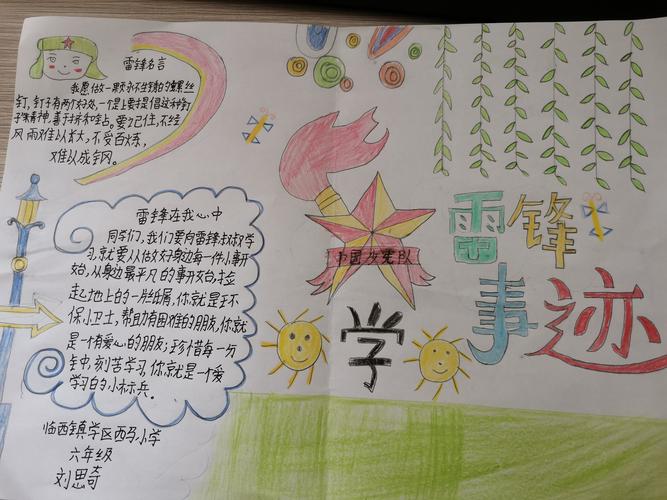 雷锋名言
我愿做一颗永不生锈的螺丝
钉,钉子有两个好处,一个是
神,善于挤和善于钻。
风雨难以长大,不受百炼,
难以成钢。
雷锋在我心中
同学们,我们要向雷锋叔叔学
习,就要从做好身边每一件小事开
始,从身边最平凡的事开始,捡
起地上的一片纸屑,你就是环
保小卫士,帮助有困难的朋友,你就
是一个有爱心的朋友;珍惜每一分
钟,刻苦学习,你就是一个爱
学习的小标兵。
临西镇学区西马小学
六年级
刘思奇
中国少先队
雷锋
学
事迹